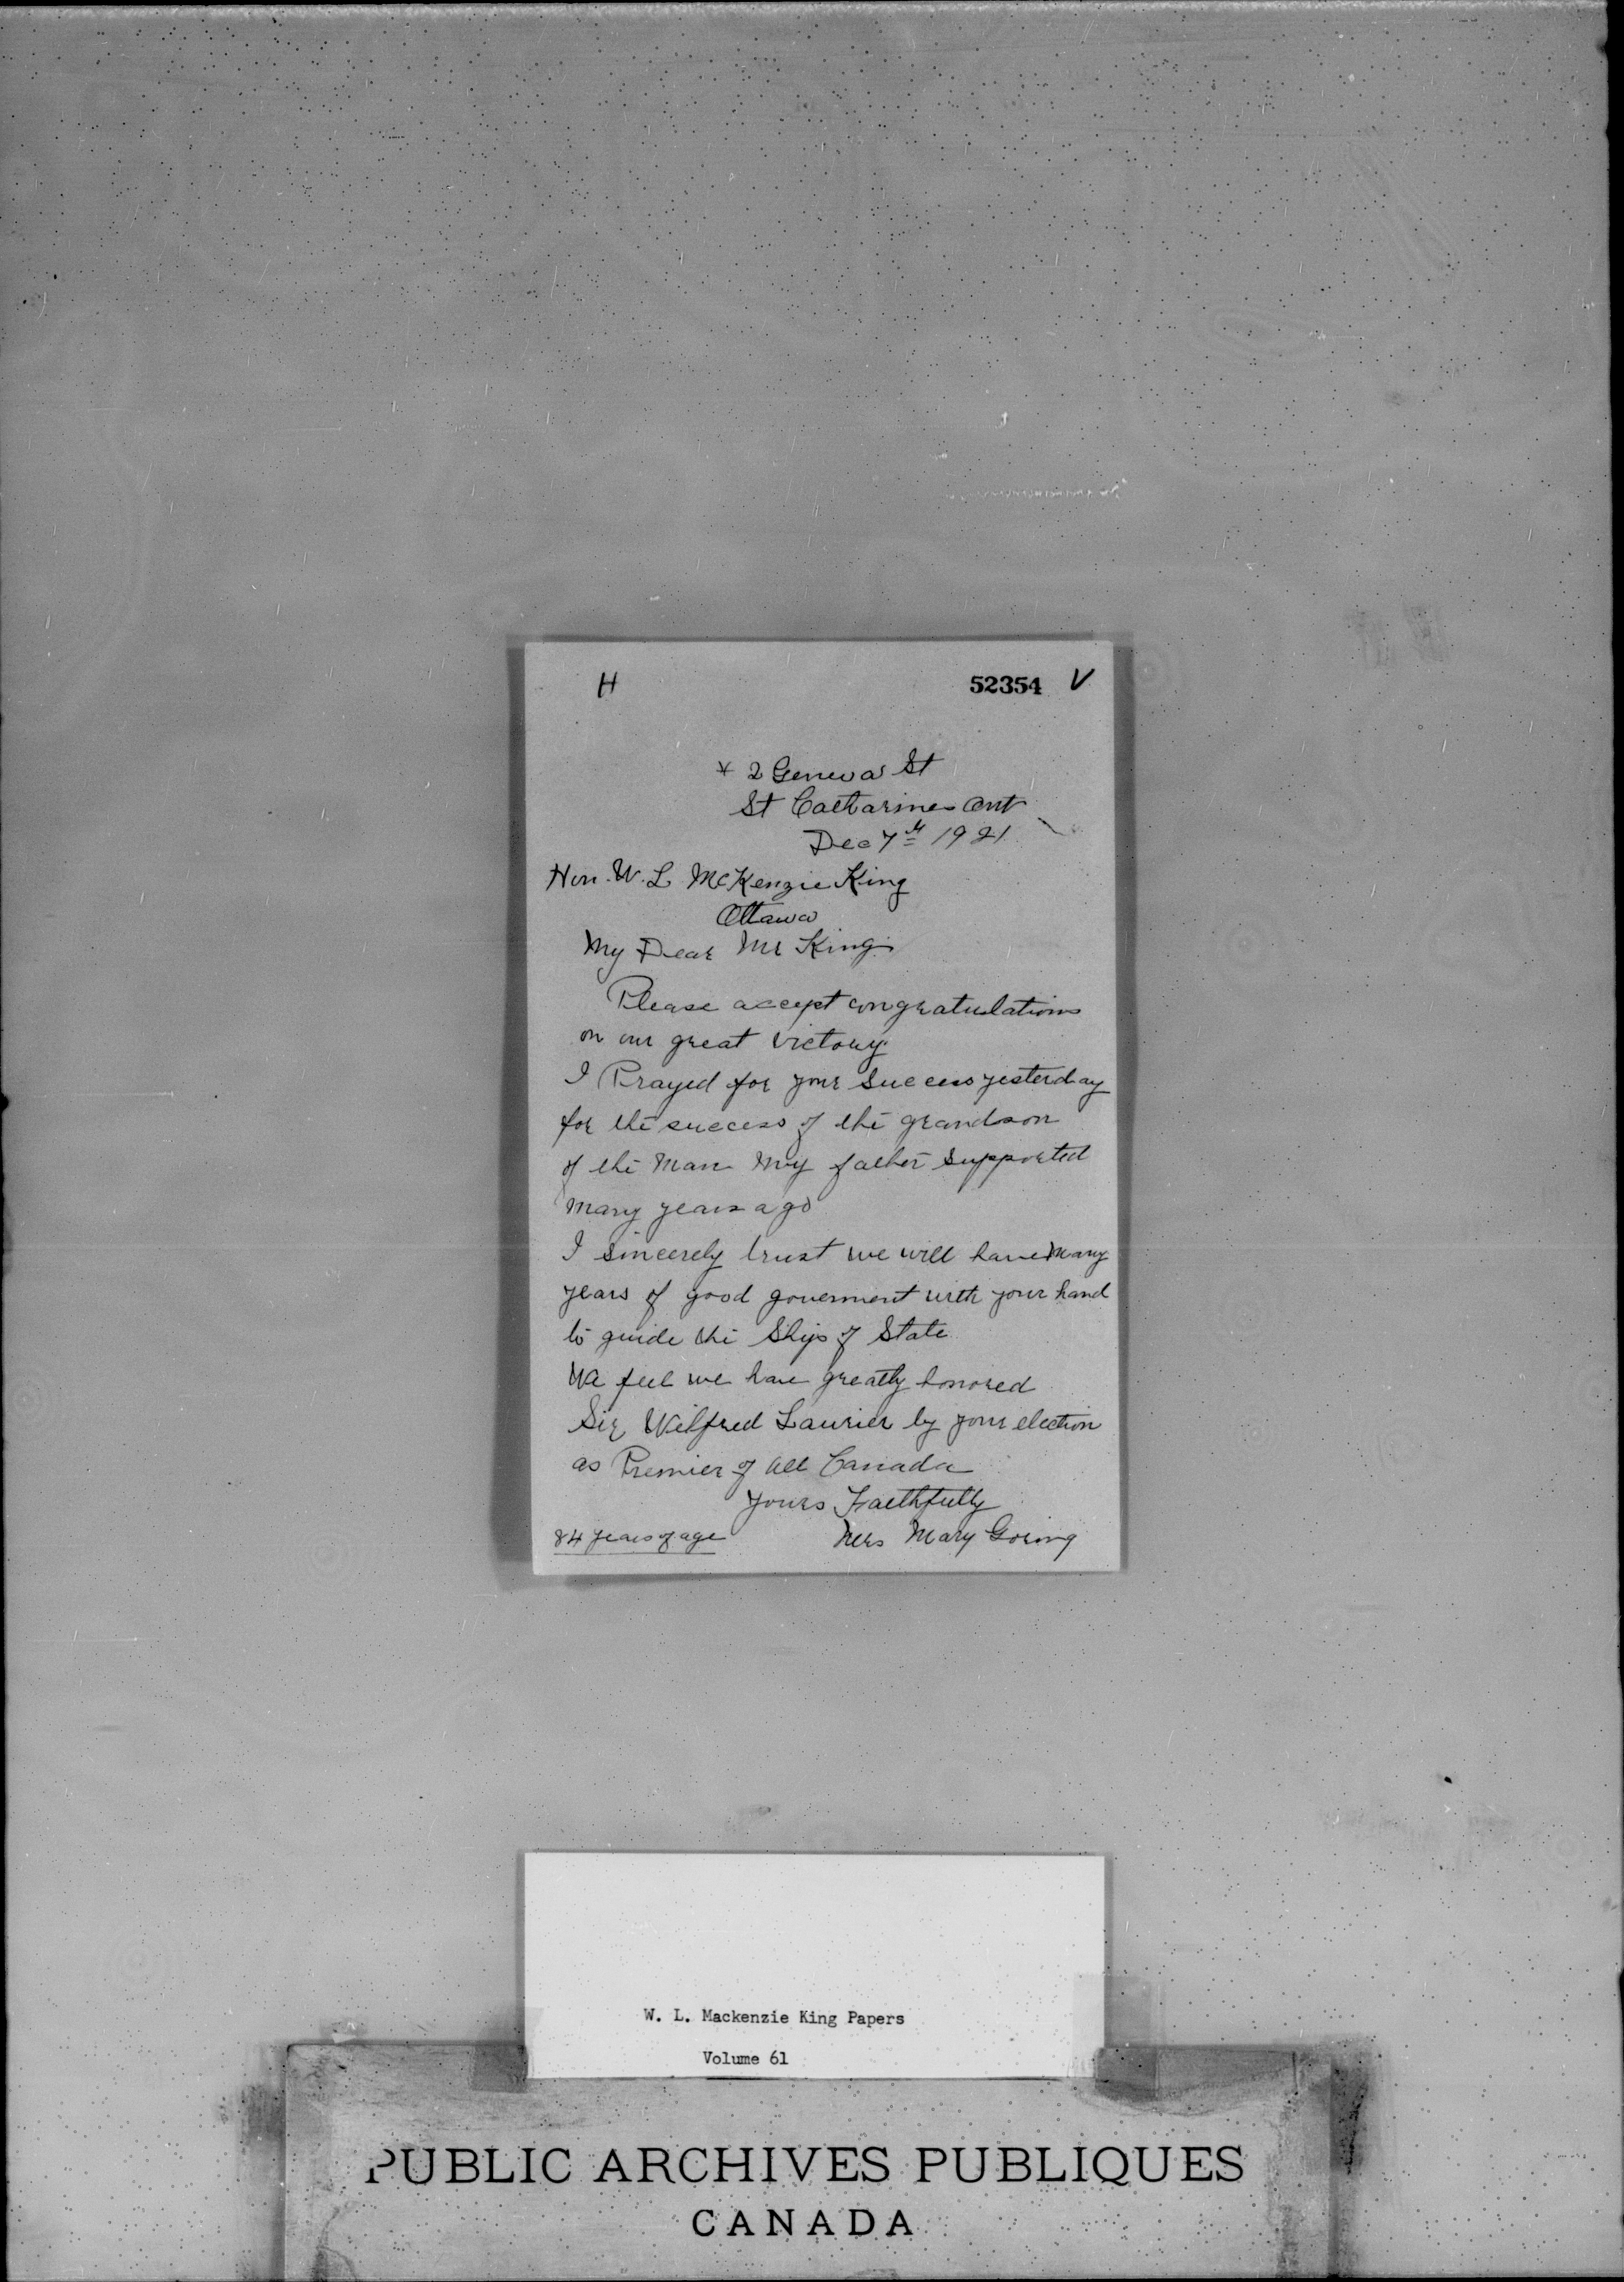 H 52354 V
* 2 Geneva St
St Catharines Ont
Dec 7th 1921
Hon. W. L McKenzie King
Ottawa
My Dear Mr King
Please accept congratulations
on our great victory
I Prayed for your success yesterday
for the success of the grandson
of the Man My father supported
Many years ago
I sincerely trust we will have Many
years of good goverment with your hand
to guide the Ship of State
We feel we have greatly honored
Sir Wilfred Laurier by your election
as Premier of All Canada
Yours Faithfully
84 years of age Mrs Mary Goring
W. L. Mackenzie King Papers
Volume 61
PUBLIC ARCHIVES PUBLIQUES
CANADA